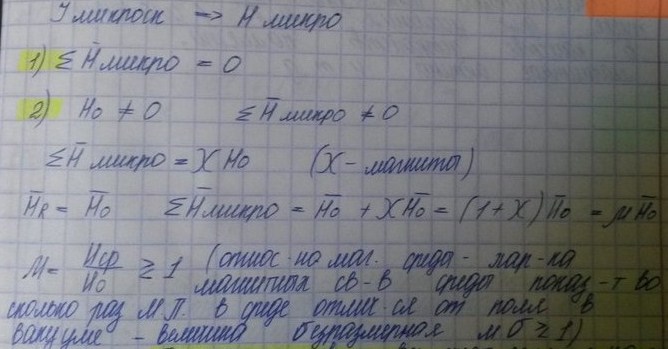 Y микроск => H микро
1) Σ H̄ микро = 0
2) H₀ ≠ 0 Σ H̄ микро ≠ 0
Σ H̄ микро = X H₀ (X – магниты)
H̄_R = H̄₀ Σ H̄ микро = H̄₀ + X H̄₀ = (1 + X) H̄₀ = μ H̄₀
M = Hср / H₀ ≥ 1 (относ-на маг. среды - хар-ка
магнитных св-в среды показ-т во
сколько раз М.П. в среде отлич-ся от поля в
вакууме – величина безразмерная